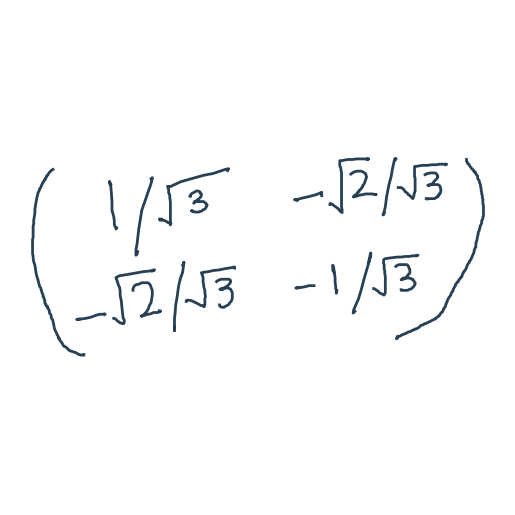 ( 1/√3 -√2/√3 )
( -√2/√3 -1/√3 )